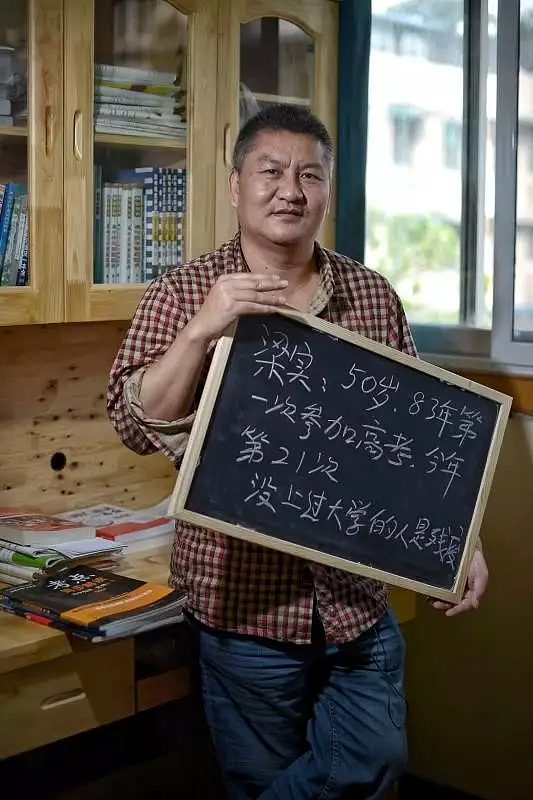 梁实：50岁.83年第
一次参加高考.今年
第21次
没上过大学的人是残疾